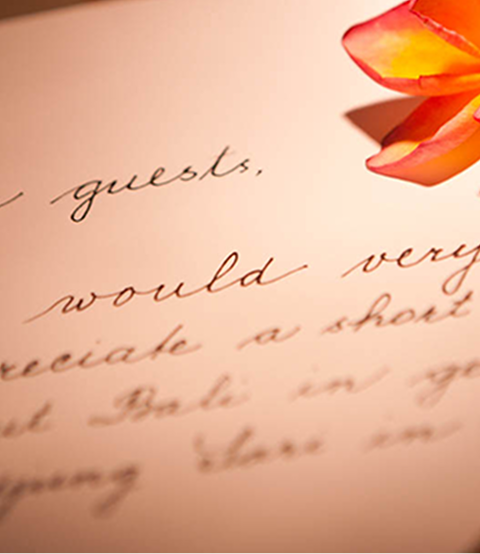 guests,
would very
reciate a short
ut Bali in ge
jung Sari in